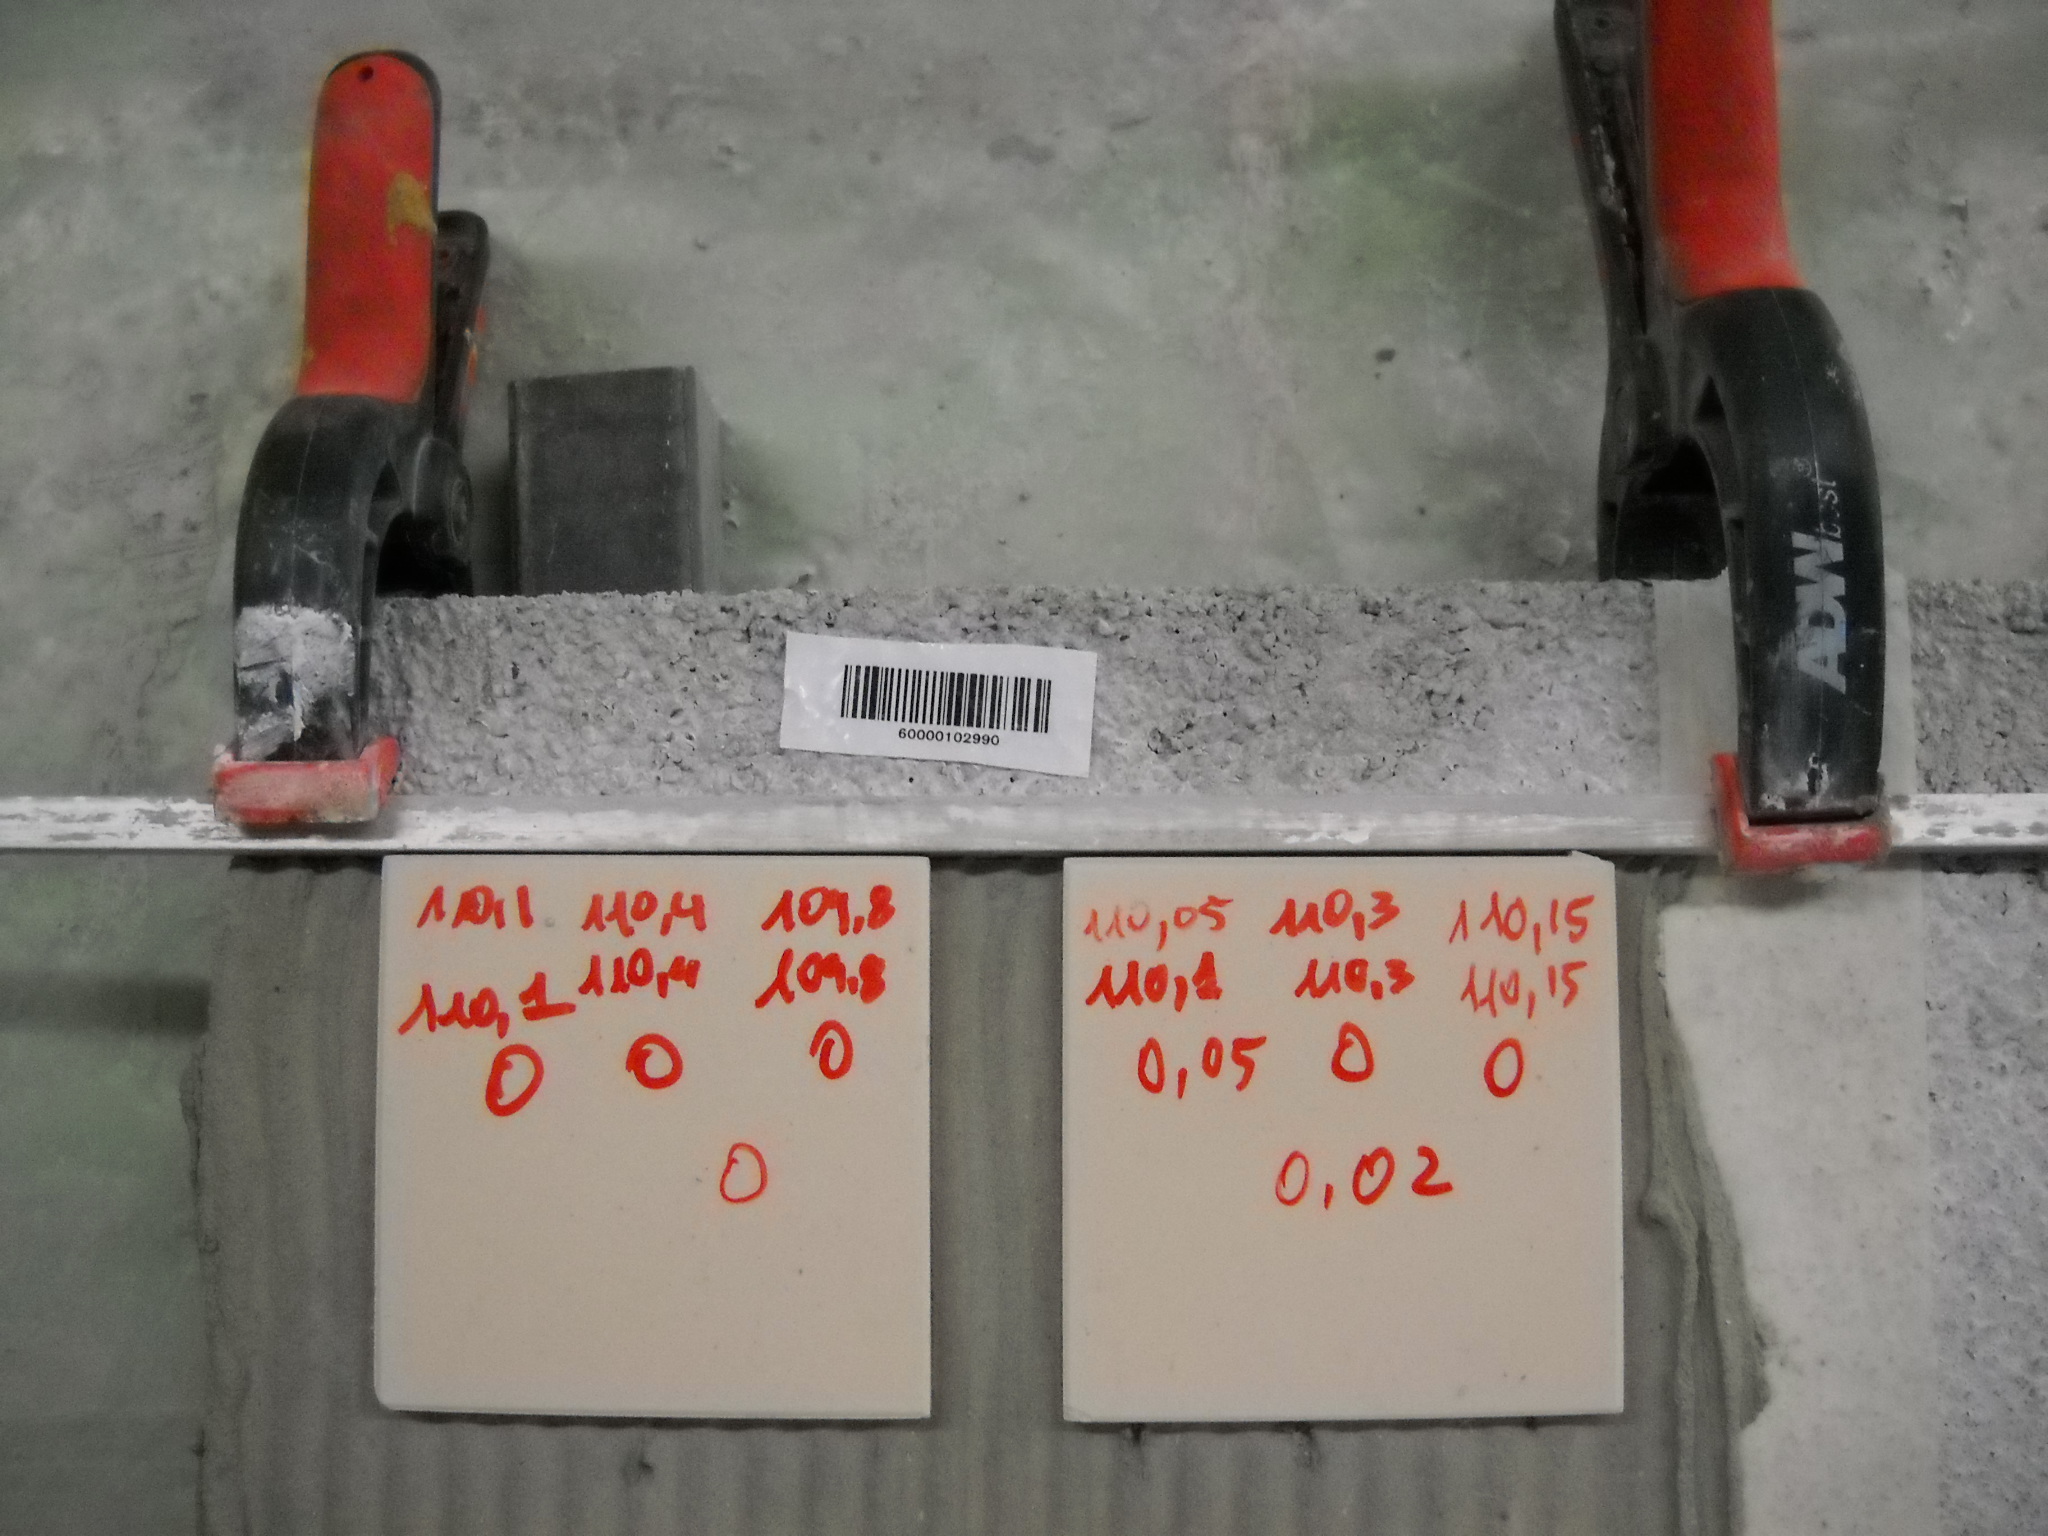 ADW best
60000102990
110,1 110,4 109,8
110,1 110,4 109.8
0 0 0
0
110,05 110,3 110,15
110,1 110,3 110,15
0,05 0 0
0,02